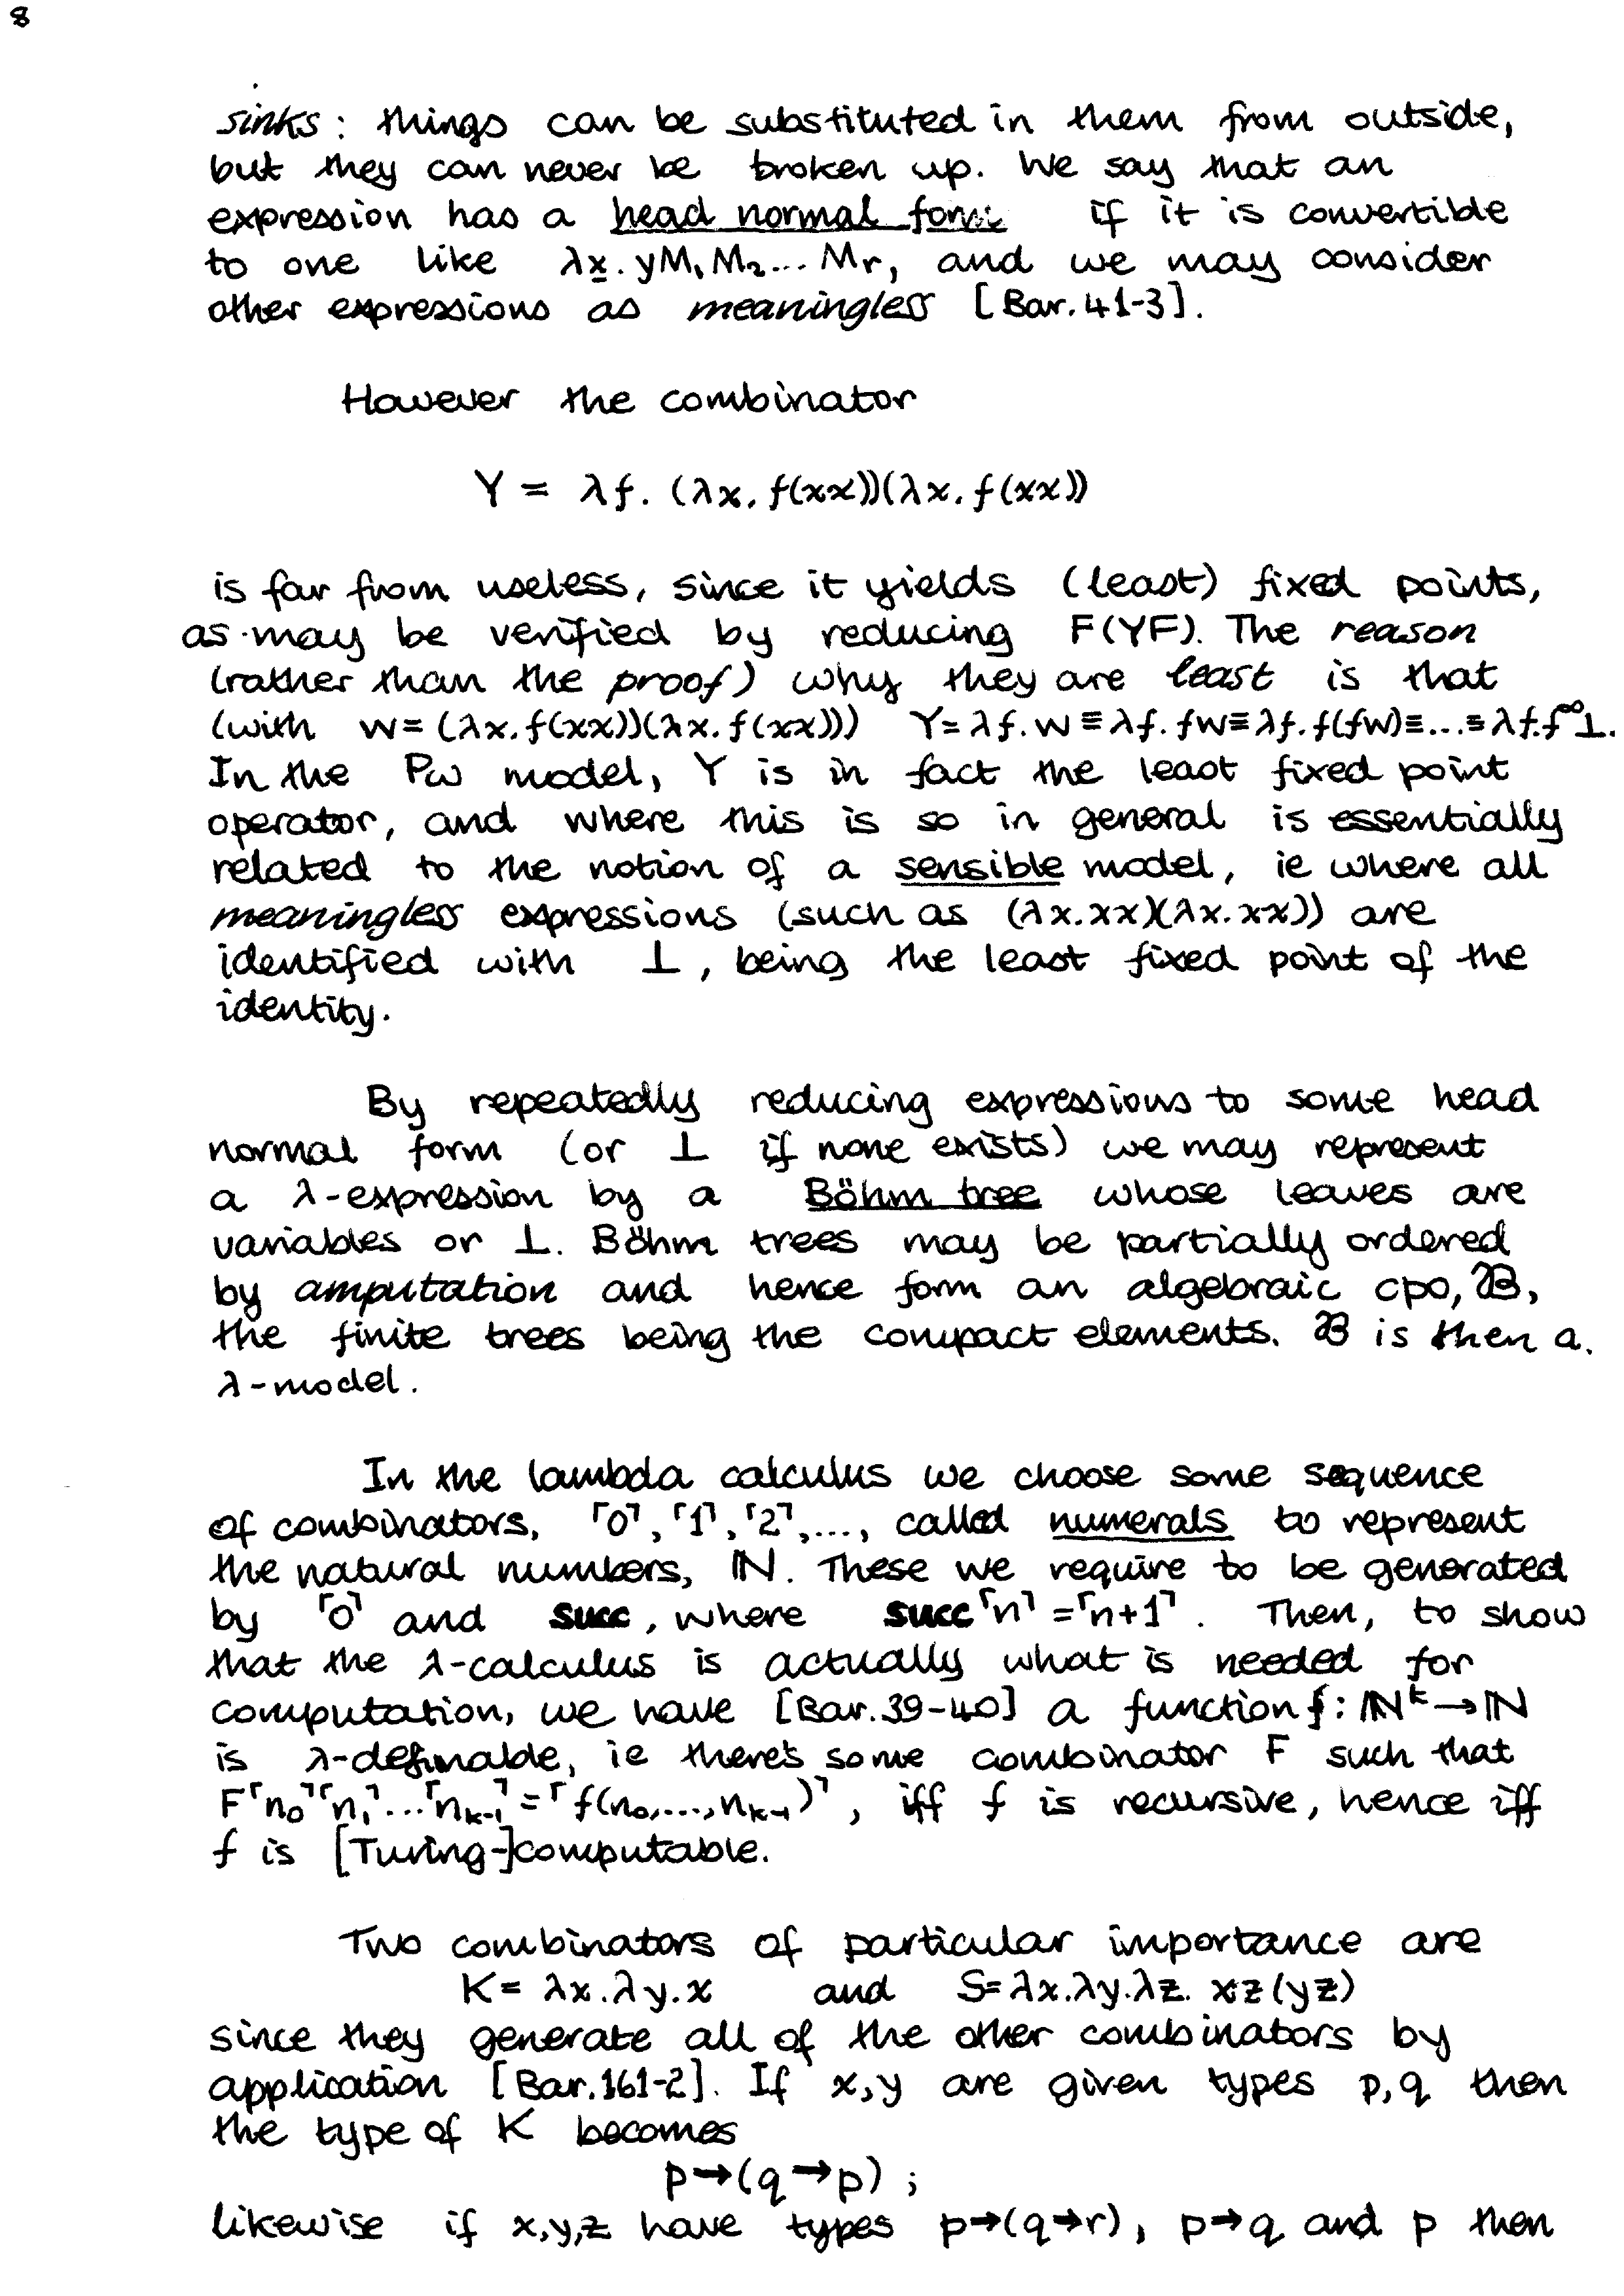 8
sinks: things can be substituted in them from outside,
but they can never be broken up. We say that an
expression has a head normal form if it is convertible
to one like λx̲. yM₁M₂... Mᵣ, and we may consider
other expressions as meaningless [Bar. 41-3].
However the combinator
Y = λf. (λx. f(xx))(λx. f(xx))
is far from useless, since it yields (least) fixed points,
as may be verified by reducing F(YF). The reason
(rather than the proof) why they are least is that
(with W = (λx. f(xx))(λx. f(xx))) Y = λf. W ≡ λf. fW ≡ λf. f(fW) ≡ ... ≡ λf. f^∞⊥.
In the Pω model, Y is in fact the least fixed point
operator, and where this is so in general is essentially
related to the notion of a sensible model, ie where all
meaningless expressions (such as (λx.xx)(λx.xx)) are
identified with ⊥, being the least fixed point of the
identity.
By repeatedly reducing expressions to some head
normal form (or ⊥ if none exists) we may represent
a λ-expression by a Böhm tree whose leaves are
variables or ⊥. Böhm trees may be partially ordered
by amputation and hence form an algebraic cpo, ℬ,
the finite trees being the compact elements. ℬ is then a
λ-model.
In the lambda calculus we choose some sequence
of combinators, ⌜0⌝, ⌜1⌝, ⌜2⌝, ..., called numerals to represent
the natural numbers, ℕ. These we require to be generated
by ⌜0⌝ and succ, where succ⌜n⌝ = ⌜n+1⌝. Then, to show
that the λ-calculus is actually what is needed for
computation, we have [Bar. 39-40] a function f: ℕᵏ → ℕ
is λ-definable, ie there's some combinator F such that
F⌜n₀⌝⌜n₁⌝...⌜nₖ₋₁⌝ = ⌜f(n₀,...,nₖ₋₁)⌝, iff f is recursive, hence iff
f is [Turing-]computable.
Two combinators of particular importance are
K = λx.λy.x and S = λx.λy.λz. xz(yz)
since they generate all of the other combinators by
application [Bar. 161-2]. If x,y are given types p,q then
the type of K becomes
p→(q→p) ;
likewise if x,y,z have types p→(q→r), p→q and p then